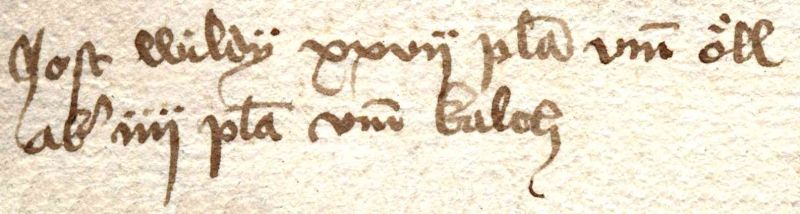 Jost wildy xxvii pła vm̄ öll
ab' iiij pła vm̄ kalch